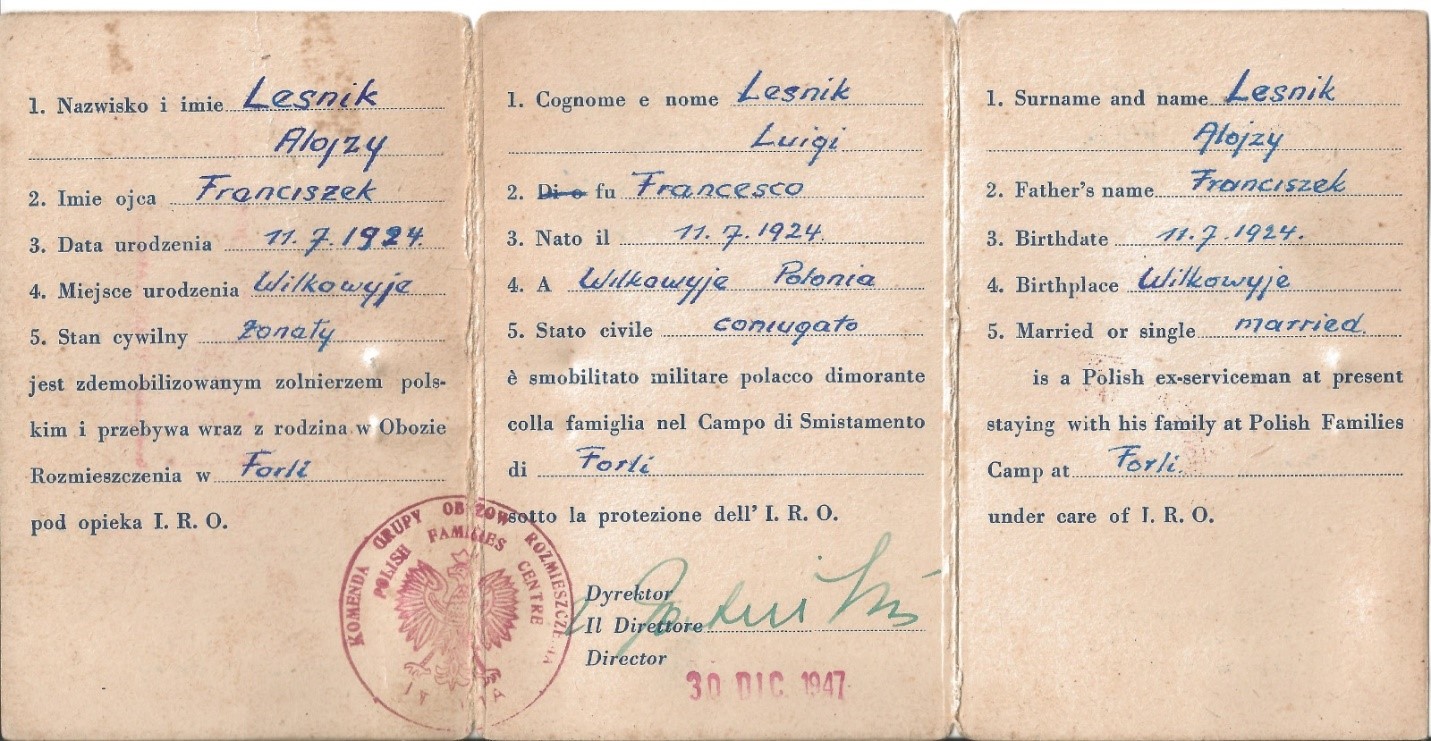 1. Nazwisko i imie Lesnik
Alojzy
2. Imie ojca Franciszek
3. Data urodzenia 11.7.1924.
4. Miejsce urodzenia Wilkowyje
5. Stan cywilny żonaty
jest zdemobilizowanym zolnierzem pols-
kim i przebywa wraz z rodzina w Obozie
Rozmieszczenia w Forli
pod opieka I. R. O.
1. Cognome e nome Lesnik
Luigi
2. Di o fu Francesco
3. Nato il 11.7.1924.
4. A Wilkowyje Polonia
5. Stato civile coniugato
è smobilitato militare polacco dimorante
colla famiglia nel Campo di Smistamento
di Forli
sotto la protezione dell' I. R. O.
KOMENDA GRUPY OBOZÓW ROZMIESZCZENIA
POLISH FAMILIES CENTRE
Dyrektor
Il Direttore
Director
30 DIC 1947
1. Surname and name Lesnik
Alojzy
2. Father's name Franciszek
3. Birthdate 11.7.1924.
4. Birthplace Wilkowyje
5. Married or single married.
is a Polish ex-serviceman at present
staying with his family at Polish Families
Camp at Forli.
under care of I. R. O.